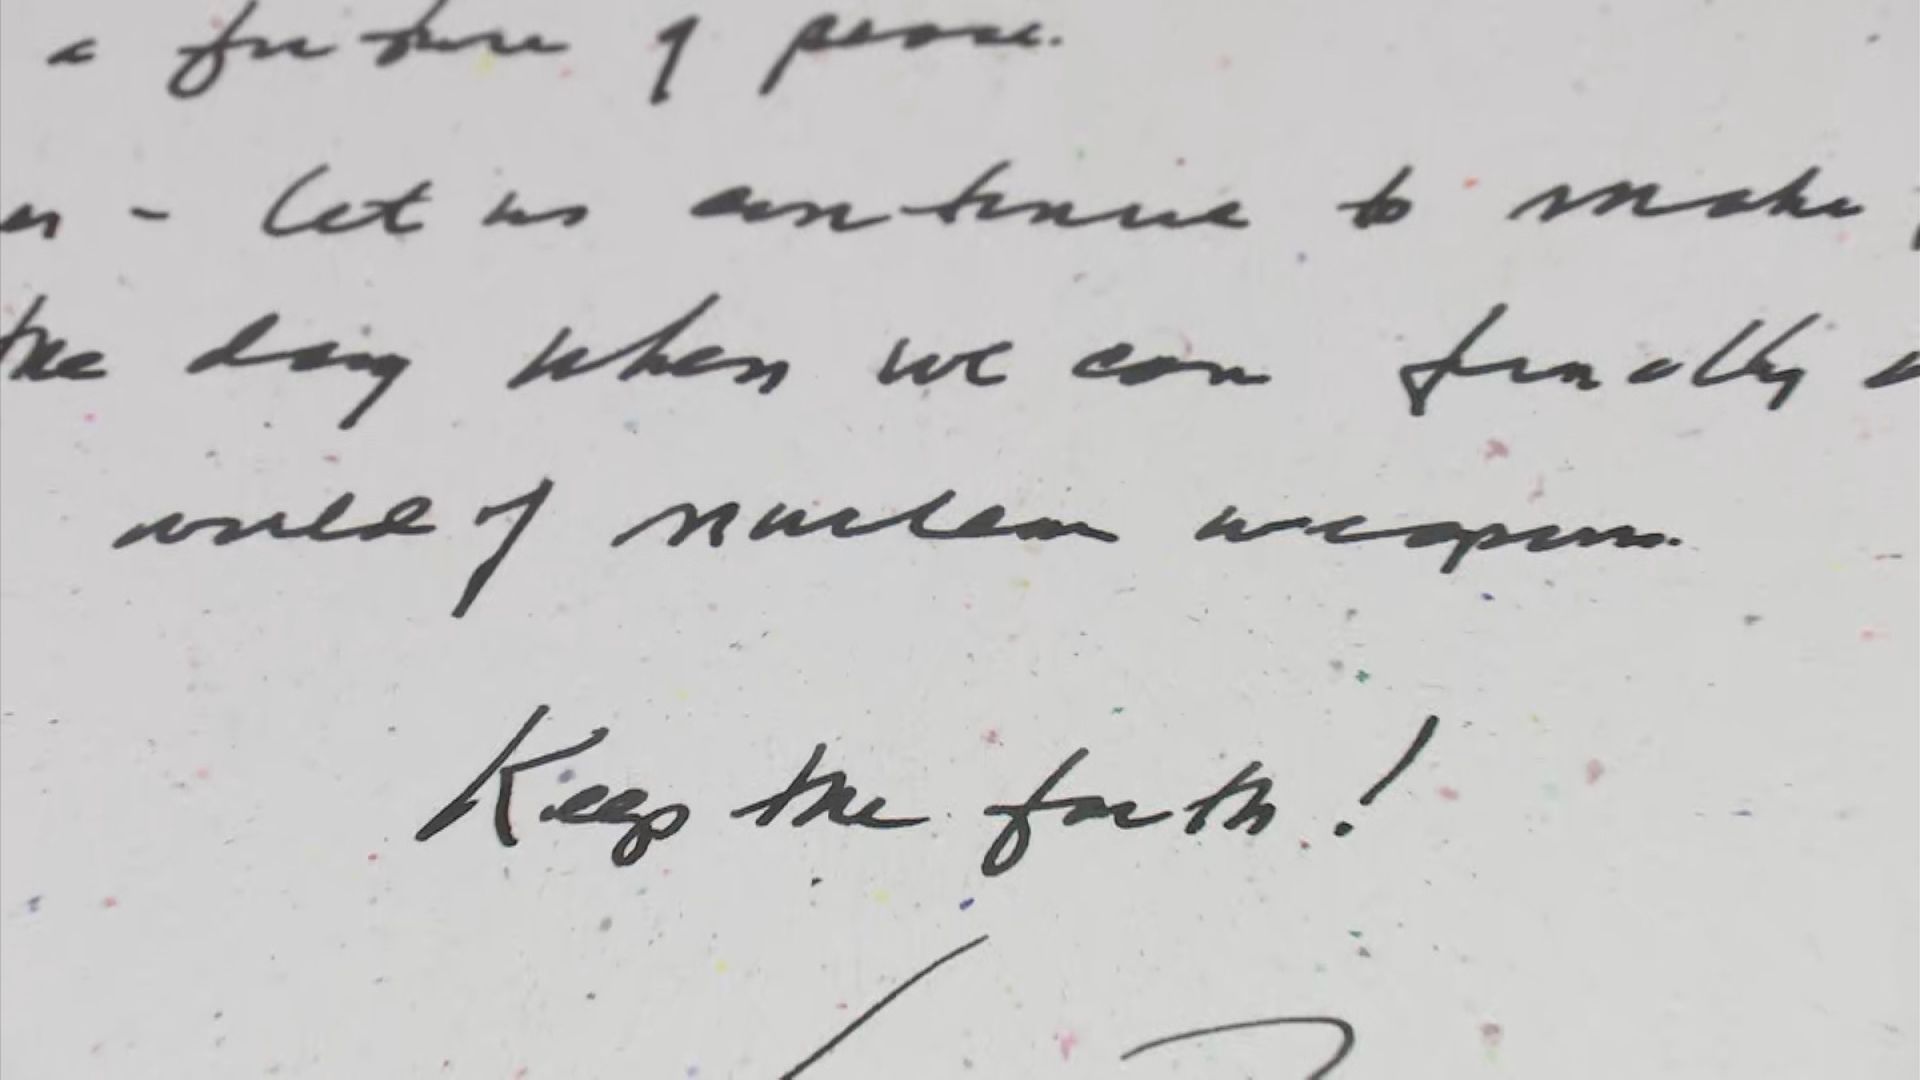 a future of peace.
- let us continue to make
the day when we can finally
world of nuclear weapons.
Keep the faith!